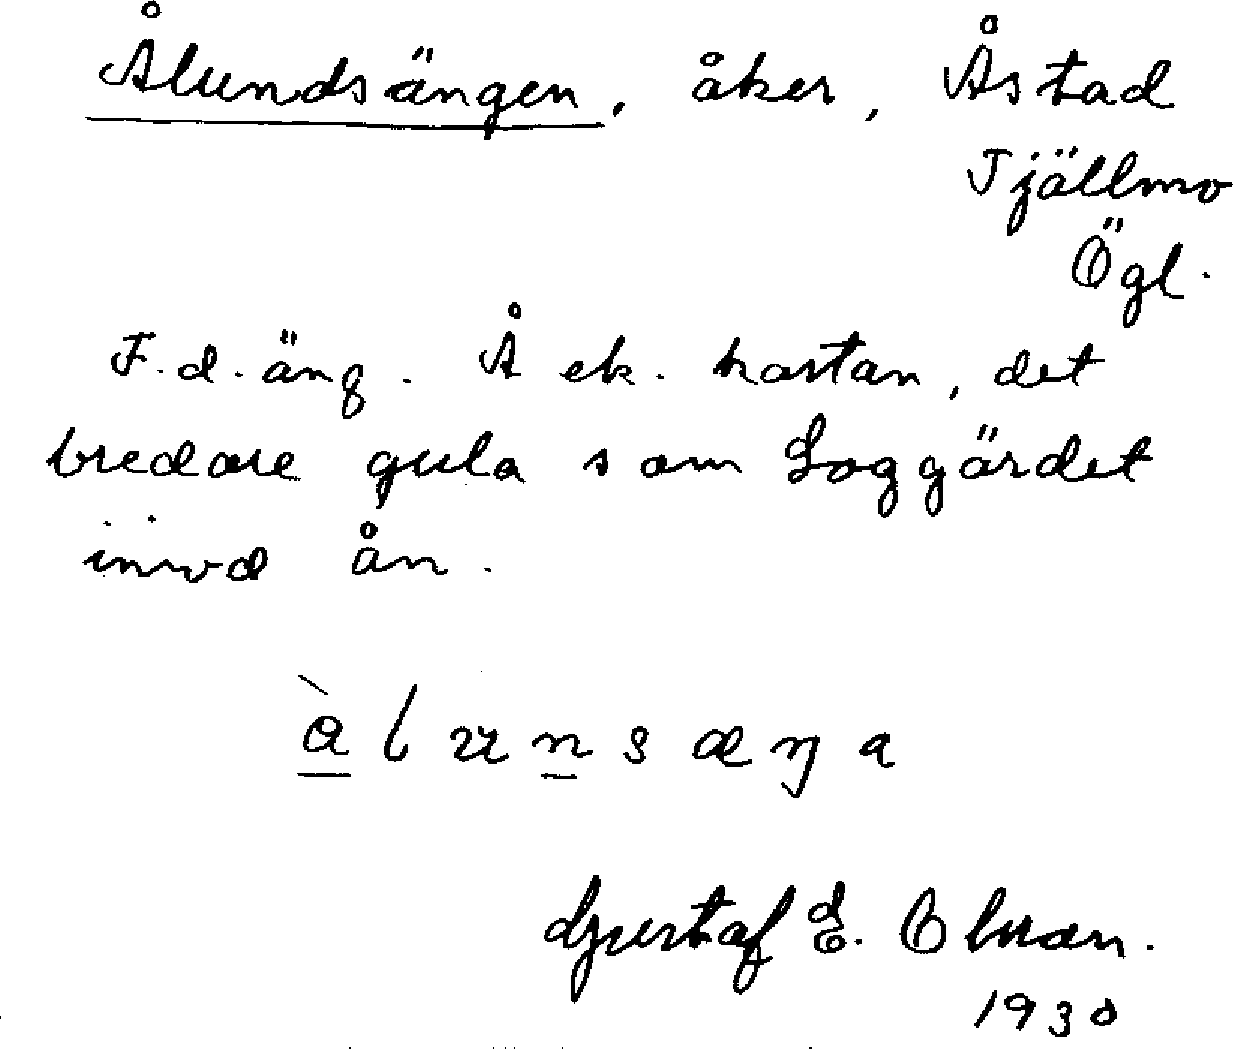 Ålundsängen, åker, Åstad
Tjällmo
Ögl.
F.d. äng. Å ek. kartan, det
bredare gula som Loggärdet
invd ån.
ὰlunsæŋa
Gustaf E. Olsson.
1930